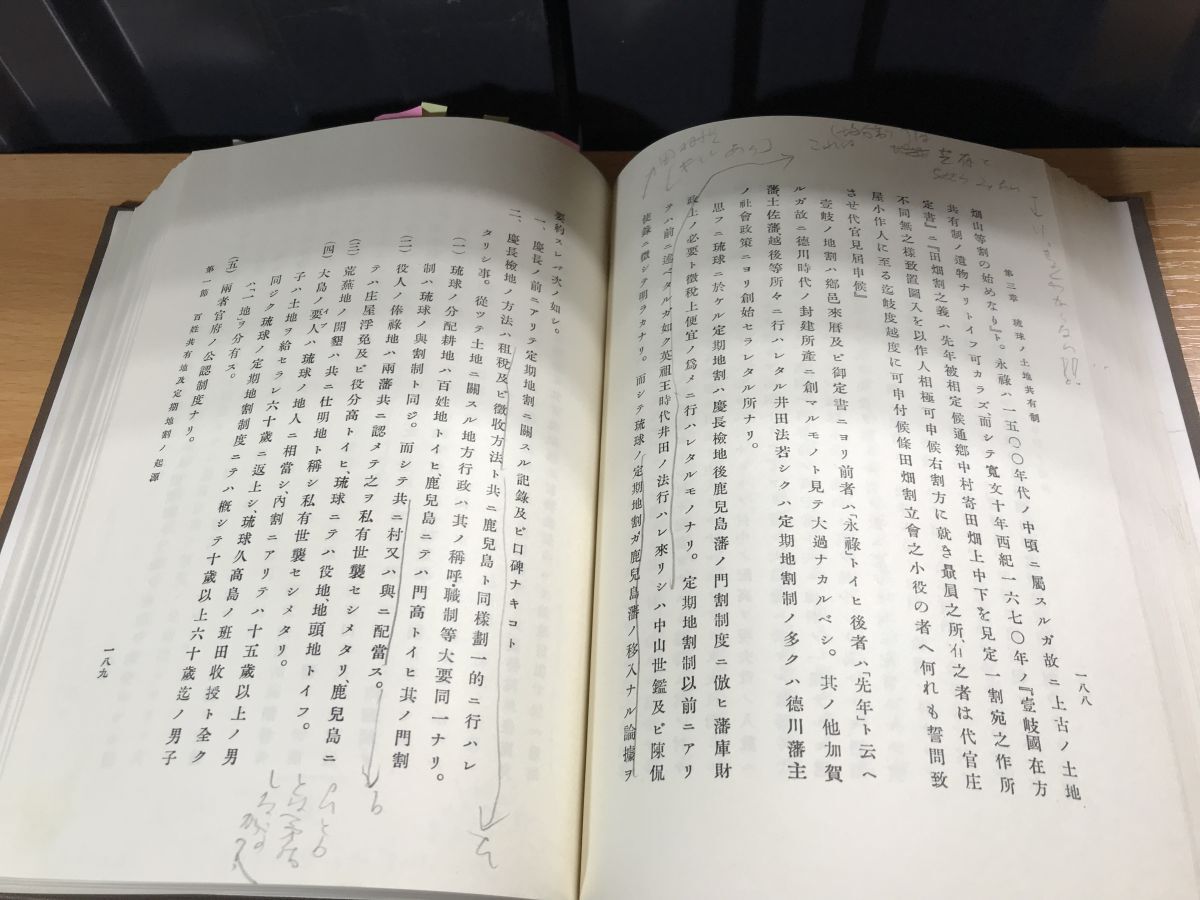 第三章 琉球ノ土地共有制
一八八
畑山等割の始めなり』ト。永祿ハ一五〇〇年代ノ中頃ニ屬スルガ故ニ上古ノ土地
共有制ノ遺物ナリトイフ可カラズ而シテ寬文十年西紀一六七〇年ノ『壹岐國在方
定書』ニ『田畑割之義ハ先年被相定候通鄕中村寄田畑上中下を見定一割宛之作所
不同無之樣致置鬮入を以作人相極可申候右割方に就き贔屓之所行之者は代官庄
屋小作人に至る迄岐度越度に可申付候條田畑割立會之小役の者へ何れも誓問致
させ代官見屆申候』
壹岐ノ地割ハ鄕邑來曆及ビ御定書ニヨリ前者ハ「永祿」トイヒ後者ハ「先年」ト云ヘ
ルガ故ニ德川時代ノ封建所產ニ創マルモノト見テ大過ナカルベシ。其ノ他加賀
藩、土佐藩、越後等所々ニ行ハレタル井田法若シクハ定期地割制ノ多クハ德川藩主
ノ社會政策ニヨリ創始セラレタル所ナリ。
思フニ琉球ニ於ケル定期地割ハ慶長檢地後鹿兒島藩ノ門割制度ニ倣ヒ藩庫財
政上ノ必要ト徵稅上便宜ノ爲メニ行ハレタルモノナリ。定期地割制以前ニアリ
テハ前ニ述ベタルガ如ク英祖王時代井田ノ法行ハレ來リシハ中山世鑑及ビ陳侃
使錄ニ徵シテ明ラカナリ。而シテ琉球ノ定期地割ガ鹿兒島藩ノ移入ナル論據ヲ
要約スレバ次ノ如シ。
一、慶長ノ前ニアリテ定期地割ニ關スル記錄及ビ口碑ナキコト
二、慶長檢地ノ方法ハ租稅及ビ徵收方法ト共ニ鹿兒島ト同樣劃一的ニ行ハレ
タリシ事。從ツテ土地ニ關スル地方行政ハ其ノ稱呼・職制等大要同一ナリ。
(一) 琉球ノ分配耕地ハ百姓地トイヒ、鹿兒島ニテハ門高トイヒ其ノ門割
制ハ琉球ノ與割制ト同ジ。而シテ共ニ村又ハ與ニ配當ス。
(二) 役人ノ俸祿地ハ兩藩共ニ認メテ之ヲ私有世襲セシメタリ、鹿兒島ニ
テハ庄屋浮免及ビ役分高トイヒ、琉球ニテハ役地、地頭地トイフ。
(三) 荒蕪地ノ開墾ハ共ニ仕明地ト稱シ私有世襲セシメタリ。
(四) 大島ノ要人ハ琉球ノ地人ニ相當シ、內割ニアリテハ十五歲以上ノ男
子ハ土地ヲ給セラレ六十歲ニ返上シ、琉球久高島ノ班田收授ト全ク
同ジク琉球ノ定期地割制度ニテハ槪シテ十歲以上六十歲迄ノ男子
ハ、一地ヲ分有ス。
(五) 兩者官府ノ公認制度ナリ。
第一節 百姓共有地及定期地割ノ起源
一八九